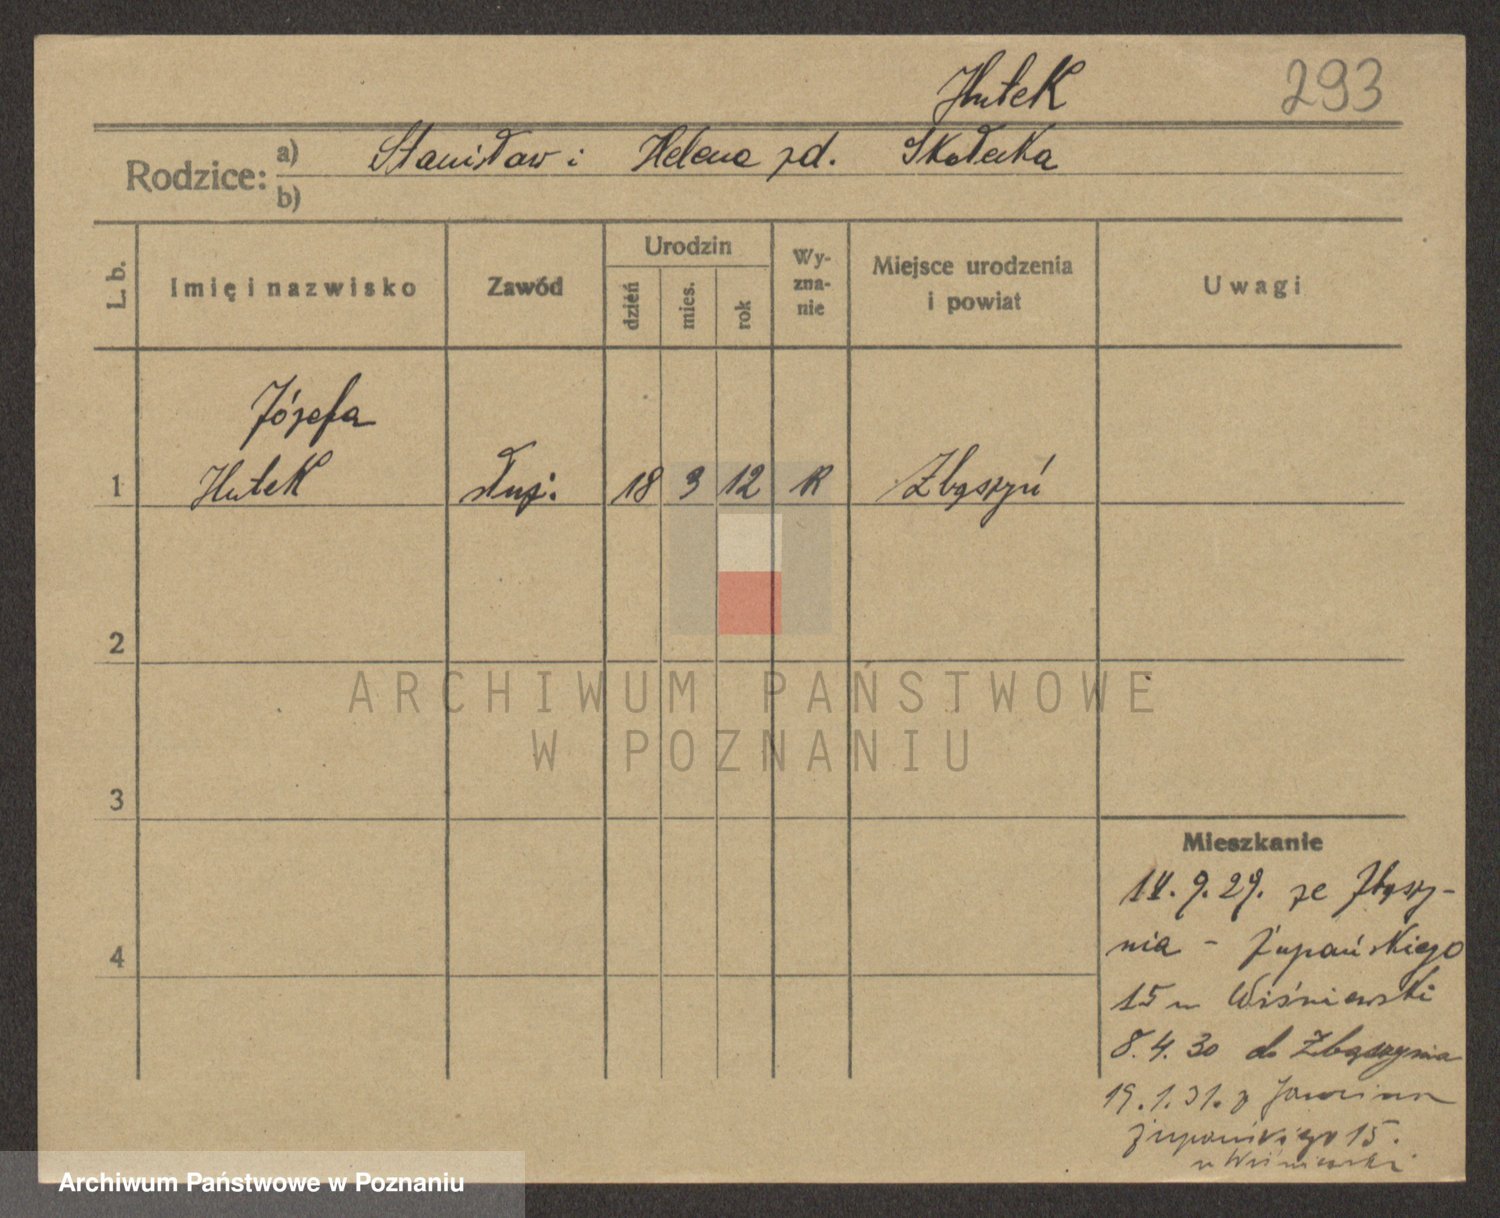 Hutek 293
Rodzice: a) Stanisław i Helena zd. Skołecka
b)
L. b. Imię i nazwisko Zawód Urodzin dzień mies. rok Wyznanie Miejsce urodzenia i powiat Uwagi
Józefa
1 Hutek służ. 18 3 12 R Zbąszyń
2
3
4
Mieszkanie
14. 9. 29. ze Zbąszy-
nia - Żupańskiego
15 u Wiśniewski
8. 4. 30 do Zbąszynia
19. 1. 31. z
Żupańskiego 15.
u Wiśniewski
ARCHIWUM PAŃSTWOWE
W POZNANIU
Archiwum Państwowe w Poznaniu